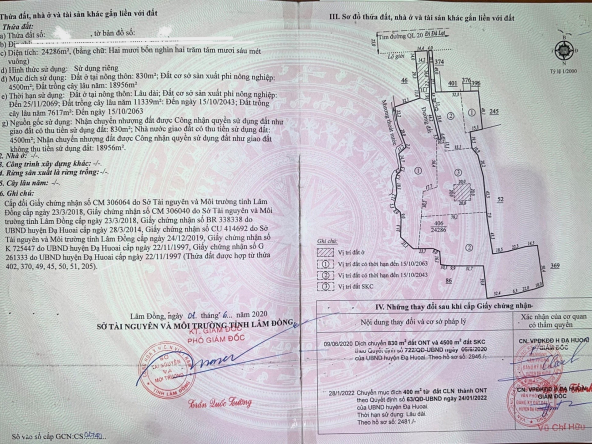 Thửa đất, nhà ở và tài sản khác gắn liền với đất
. Thửa đất:
a) Thửa đất số: , tờ bản đồ số:
b) Địa
c) Diện tích: 24286m² (bằng chữ: Hai mươi bốn nghìn hai trăm tám mươi sáu mét
vuông)
d) Hình thức sử dụng: Sử dụng riêng
đ) Mục đích sử dụng: Đất ở tại nông thôn: 830m²; Đất cơ sở sản xuất phi nông nghiệp:
4500m²; Đất trồng cây lâu năm: 18956m²
e) Thời hạn sử dụng: Đất ở tại nông thôn: Lâu dài; Đất cơ sở sản xuất phi nông nghiệp:
Đến 25/11/2069; Đất trồng cây lâu năm 11339m²: Đến ngày 15/10/2043; Đất trồng
cây lâu năm 7617m²: Đến ngày 15/10/2063
g) Nguồn gốc sử dụng: Nhận chuyển nhượng đất được Công nhận quyền sử dụng đất như
giao đất có thu tiền sử dụng đất: 830m²; Nhà nước giao đất có thu tiền sử dụng đất:
4500m²; Nhận chuyển nhượng đất được Công nhận quyền sử dụng đất như giao đất
không thu tiền sử dụng đất: 18956m².
2. Nhà ở: -/-.
3. Công trình xây dựng khác: -/-.
4. Rừng sản xuất là rừng trồng: -/-.
5. Cây lâu năm: -/-.
6. Ghi chú:
Cấp đổi Giấy chứng nhận số CM 306064 do Sở Tài nguyên và Môi trường tỉnh Lâm
Đồng cấp ngày 23/3/2018, Giấy chứng nhận số CM 306040 do Sở Tài nguyên và Môi
trường tỉnh Lâm Đồng cấp ngày 23/3/2018, Giấy chứng nhận số BR 338338 do
UBND huyện Đạ Huoai cấp ngày 28/3/2014, Giấy chứng nhận số CU 414692 do Sở
Tài nguyên và Môi trường tỉnh Lâm Đồng cấp ngày 24/12/2019, Giấy chứng nhận số
K 725447 do UBND huyện Đạ Huoai cấp ngày 22/11/1997, Giấy chứng nhận số G
261333 do UBND huyện Đạ Huoai cấp ngày 22/11/1997 (Thửa đất được hợp từ thửa
402, 370, 49, 45, 50, 51, 205).
Lâm Đồng, ngày 01 tháng 6 năm 2020
SỞ TÀI NGUYÊN VÀ MÔI TRƯỜNG TỈNH LÂM ĐỒNG
KT. GIÁM ĐỐC
PHÓ GIÁM ĐỐC
SỞ
TÀI NGUYÊN
VÀ
MÔI TRƯỜNG
Số vào sổ cấp GCN:CS
III. Sơ đồ thửa đất, nhà ở và tài sản khác gắn liền với đất
Tim đường QL 20 Đi Đà Lạt
Lộ giới
Tỷ lệ 1/2000
46
374
401
376
396
245
Mương thoát nước
Đường đất
52
406
24286
86
369
Ghi chú:
Vị trí đất ở
① Vị trí đất có thời hạn đến 15/10/2063
② Vị trí đất có thời hạn đến 15/10/2043
③ Vị trí đất SKC
IV. Những thay đổi sau khi cấp Giấy chứng nhận
Nội dung thay đổi và cơ sở pháp lý
Xác nhận của cơ quan
có thẩm quyền
09/06/2020 Dịch chuyển 830 m² đất ONT và 4500 m² đất SKC
theo Quyết định số 722/QĐ-UBND ngày 05/6/2020
của UBND huyện Đạ Huoai. Theo hồ sơ: 2946/.
CN. VPĐKĐĐ H ĐẠ HUOAI
GIÁM ĐỐC
28/1/2022 Chuyển mục đích 400 m² từ đất CLN thành ONT
theo Quyết định số 63/QĐ-UBND ngày 24/01/2022
của UBND huyện Đạ Huoai.
Thời hạn sử dụng: Lâu dài.
Theo hồ sơ: 2481/.
CN. VPĐKĐĐ H ĐẠ HUOAI
GIÁM ĐỐC
Võ Chí Hữu